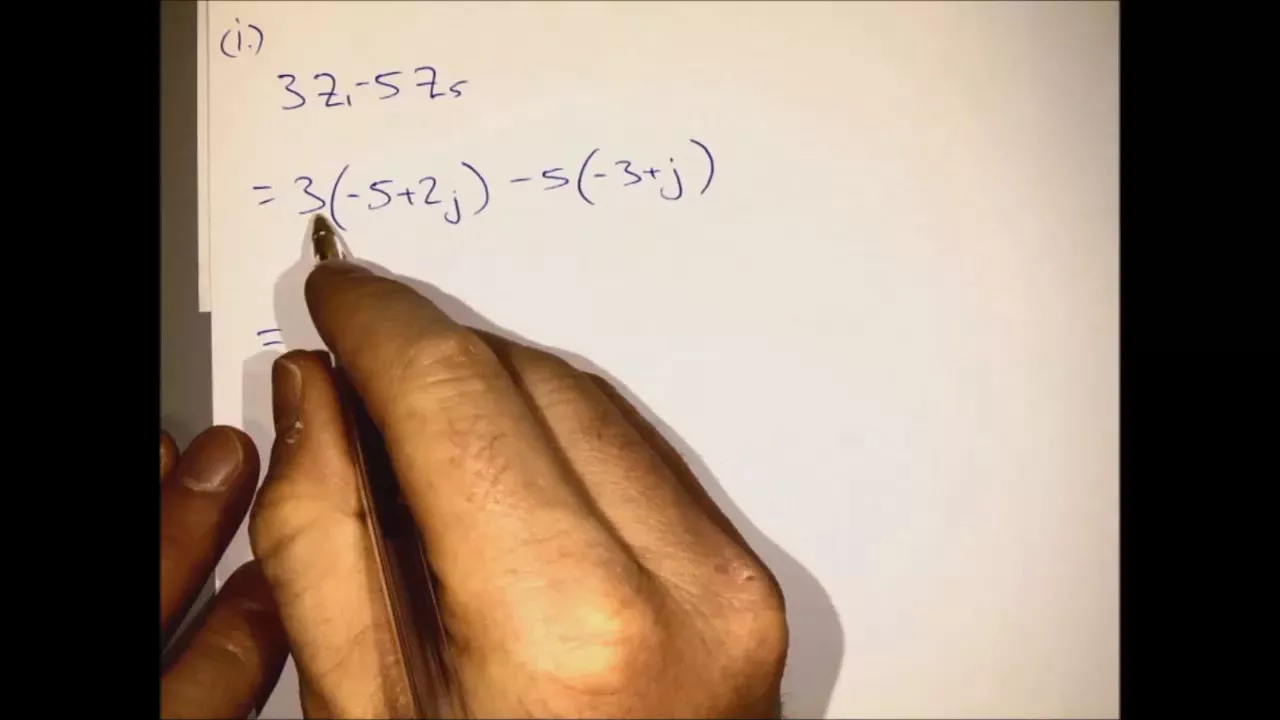 (i.)
3Z₁-5Z₅
= 3(-5+2j) -5(-3+j)
=